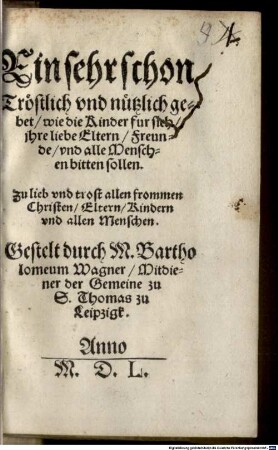 Ein sehr schon
Tröstlich vnd nützlich ge-
bet / wie die Kinder fur sich /
jhre liebe Eltern / Freun-
de / vnd alle Mensch-
en bitten sollen.
Zu lieb vnd trost allen frommen
Christen / Eltern / Kindern
vnd allen Menschen.
Gestelt durch M. Bartho
lomeum Wagner / Mitdie-
ner der Gemeine zu
S. Thomas zu
Leipzigk.
Anno
M. D. L.